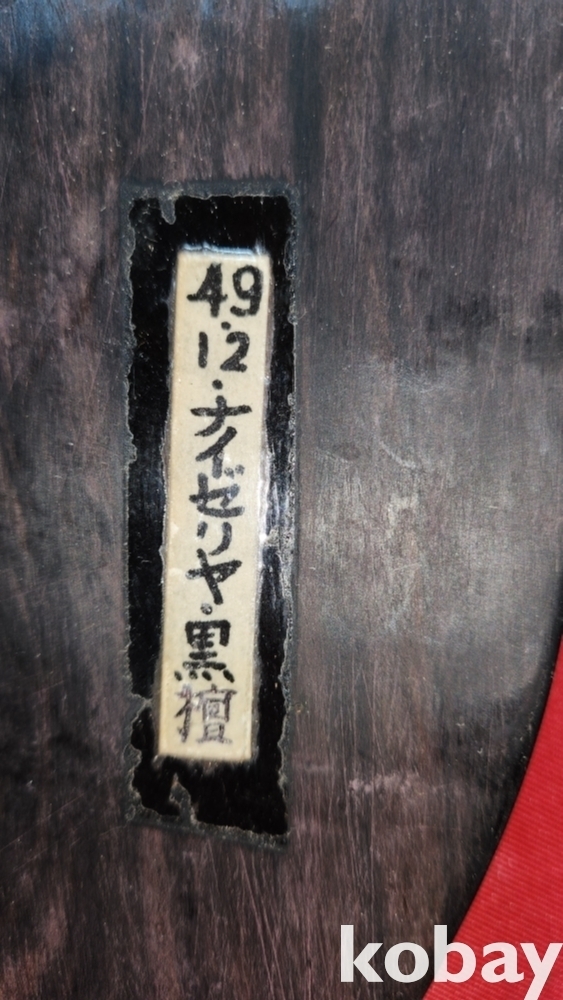 49.12.ナイゼリヤ.黒檀
kobay